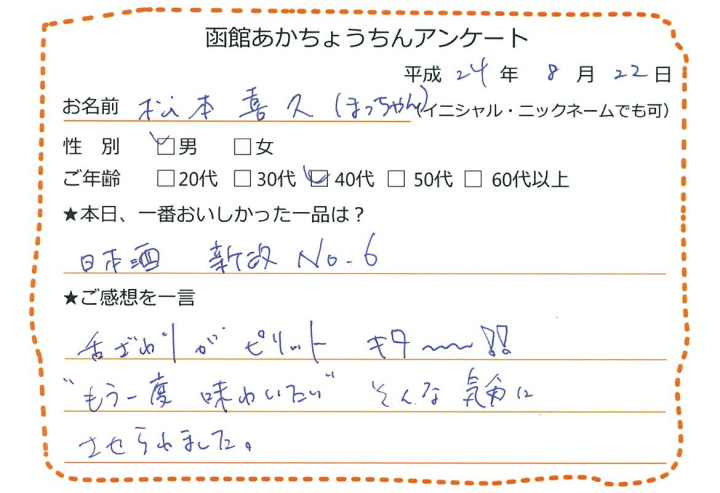 函館あかちょうちんアンケート
平成 24 年 8 月 22 日
お名前 松本 喜久 (まっちゃん) (イニシャル・ニックネームでも可)
性 別 □男 □女
ご年齢 □20代 □30代 □40代 □50代 □60代以上
★本日、一番おいしかった一品は？
日本酒 新政 No.6
★ご感想を一言
舌ざわりがピリット キタ～～!!
"もう一度 味わいたい" そんな気分に
させられました。